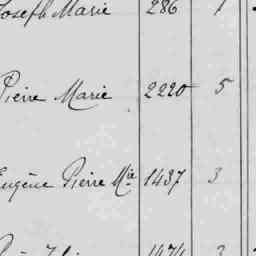 Joseph Marie 286 1
Pierre Marie 2220 5
Eugène Pierre Mie 1437 3
1474 3